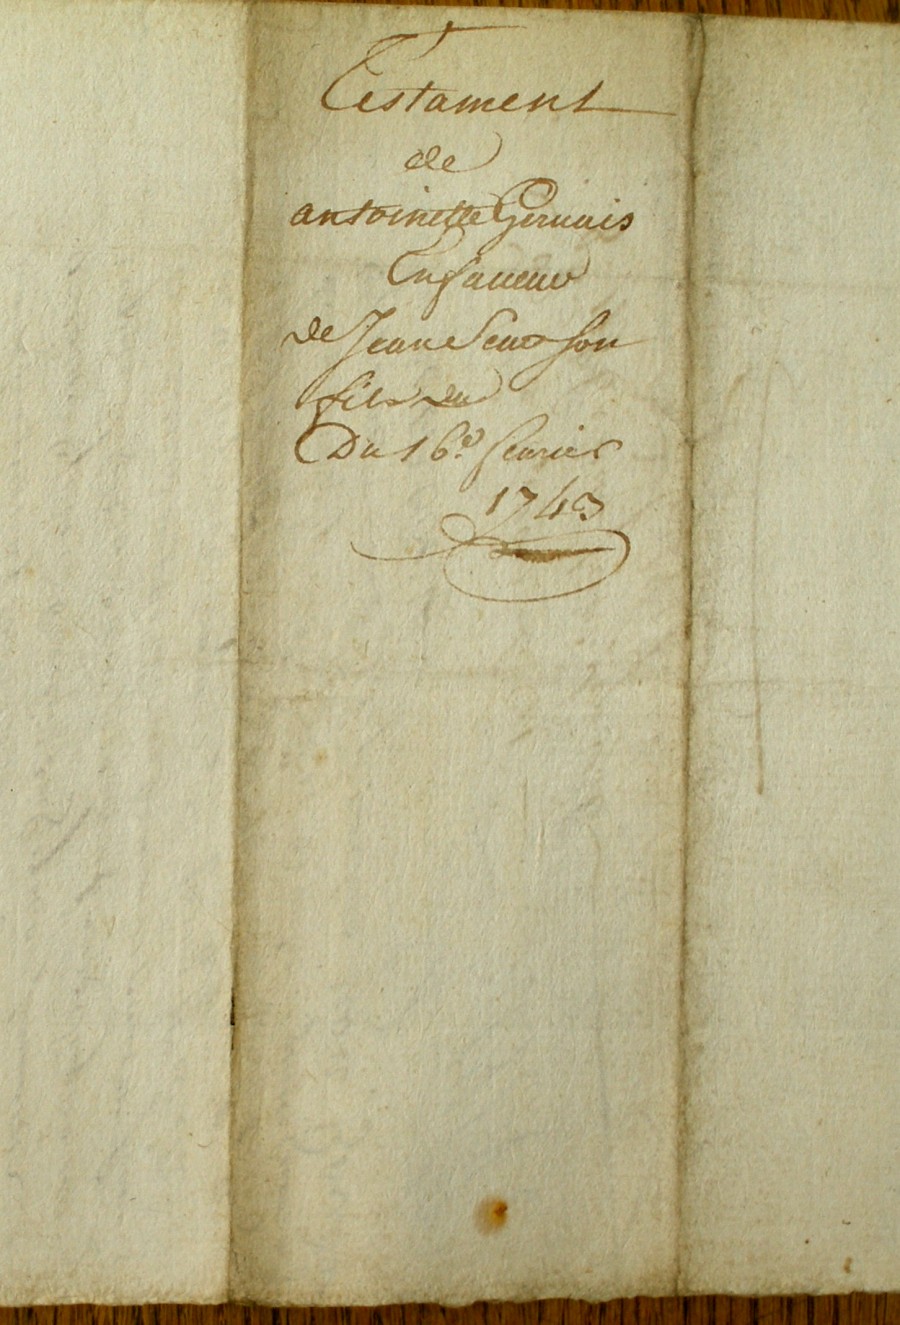 Testament
de
antoinette Gervais
En faveur
de Jean son
fils du
Du 16e fevrier
1743